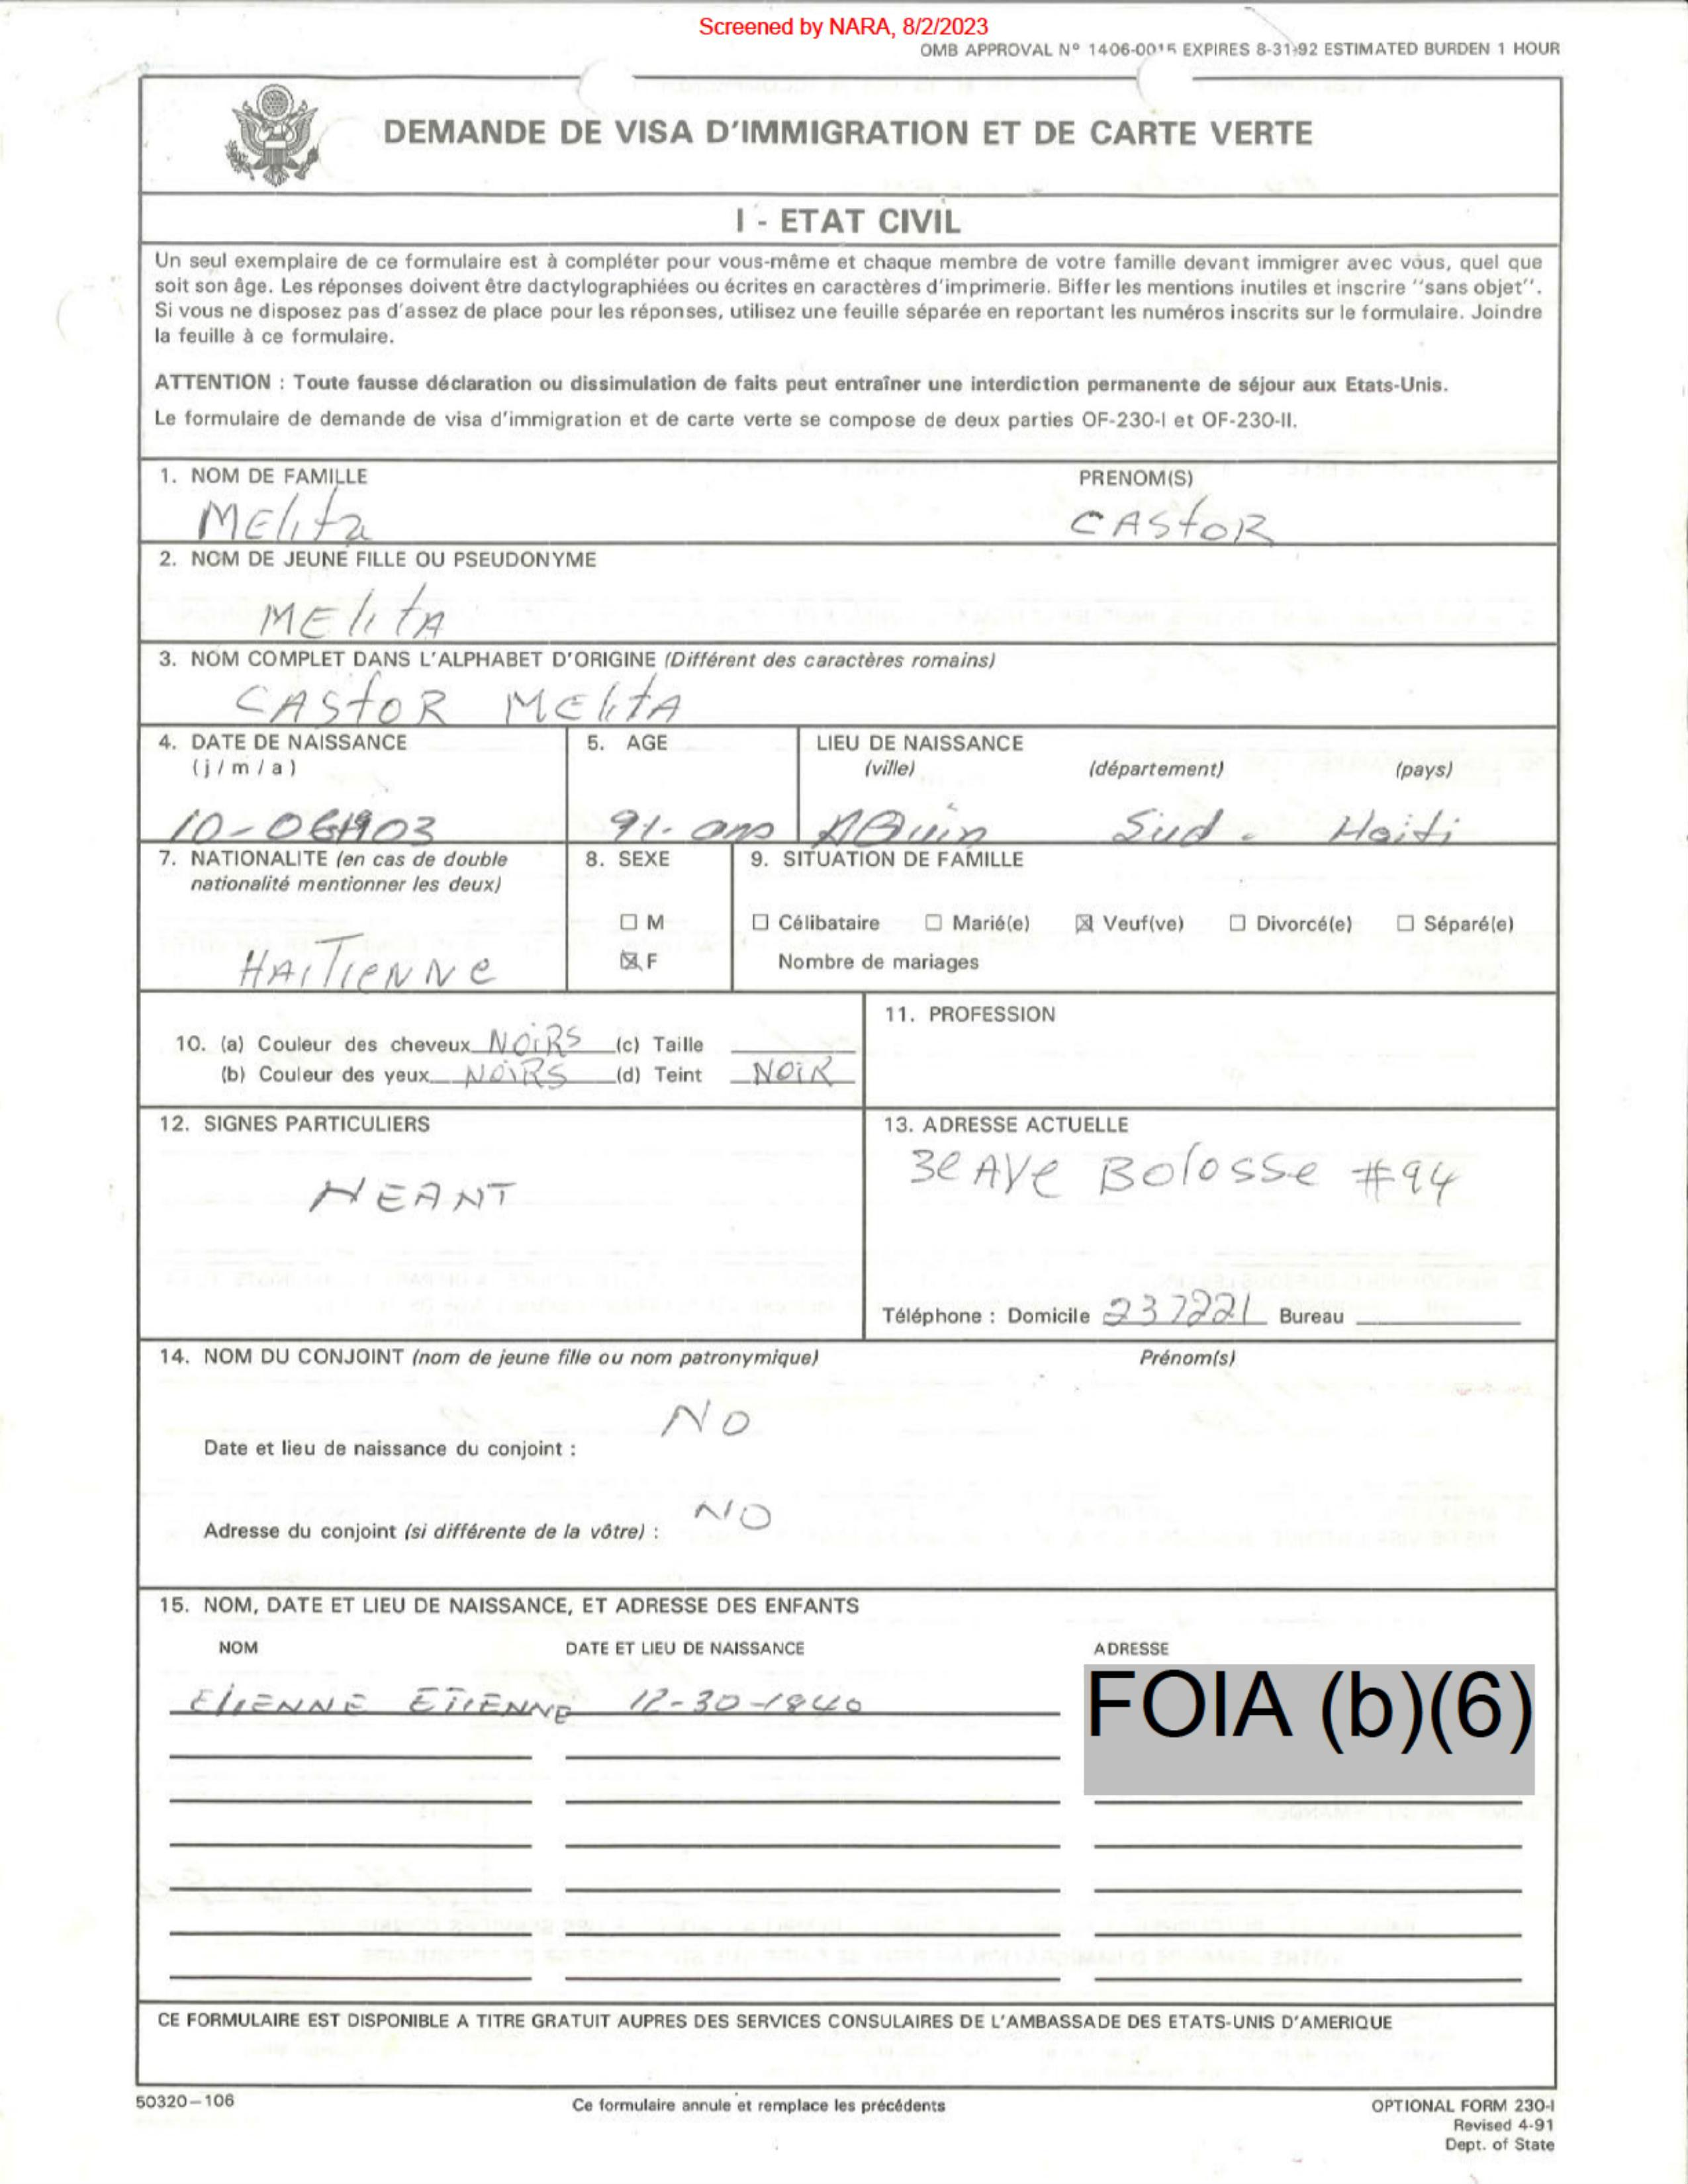 Screened by NARA, 8/2/2023
OMB APPROVAL Nº 1406-0015 EXPIRES 8-31-92 ESTIMATED BURDEN 1 HOUR
DEMANDE DE VISA D'IMMIGRATION ET DE CARTE VERTE
I - ETAT CIVIL
Un seul exemplaire de ce formulaire est à compléter pour vous-même et chaque membre de votre famille devant immigrer avec vous, quel que
soit son âge. Les réponses doivent être dactylographiées ou écrites en caractères d'imprimerie. Biffer les mentions inutiles et inscrire "sans objet".
Si vous ne disposez pas d'assez de place pour les réponses, utilisez une feuille séparée en reportant les numéros inscrits sur le formulaire. Joindre
la feuille à ce formulaire.
ATTENTION : Toute fausse déclaration ou dissimulation de faits peut entraîner une interdiction permanente de séjour aux Etats-Unis.
Le formulaire de demande de visa d'immigration et de carte verte se compose de deux parties OF-230-I et OF-230-II.
1. NOM DE FAMILLE PRENOM(S)
MElita CAStoR
2. NOM DE JEUNE FILLE OU PSEUDONYME
MElitA
3. NOM COMPLET DANS L'ALPHABET D'ORIGINE (Différent des caractères romains)
CAStoR MElitA
4. DATE DE NAISSANCE 5. AGE LIEU DE NAISSANCE
(j / m / a) (ville) (département) (pays)
10-06-1903 91. ans AQuin Sud - Haiti
7. NATIONALITE (en cas de double 8. SEXE 9. SITUATION DE FAMILLE
nationalité mentionner les deux)
☐ M ☐ Célibataire ☐ Marié(e) ☒ Veuf(ve) ☐ Divorcé(e) ☐ Séparé(e)
HAITIeNNe ☒ F Nombre de mariages
11. PROFESSION
10. (a) Couleur des cheveux NOiRS (c) Taille
(b) Couleur des yeux NOiRS (d) Teint NOiR
12. SIGNES PARTICULIERS 13. ADRESSE ACTUELLE
3e AVe Bolosse #94
NEANT
Téléphone : Domicile 237221 Bureau
14. NOM DU CONJOINT (nom de jeune fille ou nom patronymique) Prénom(s)
NO
Date et lieu de naissance du conjoint :
NO
Adresse du conjoint (si différente de la vôtre) :
15. NOM, DATE ET LIEU DE NAISSANCE, ET ADRESSE DES ENFANTS
NOM DATE ET LIEU DE NAISSANCE ADRESSE
ETIENNE 12-30-1940 FOIA (b)(6)
CE FORMULAIRE EST DISPONIBLE A TITRE GRATUIT AUPRES DES SERVICES CONSULAIRES DE L'AMBASSADE DES ETATS-UNIS D'AMERIQUE
50320-106 Ce formulaire annule et remplace les précédents OPTIONAL FORM 230-I
Revised 4-91
Dept. of State